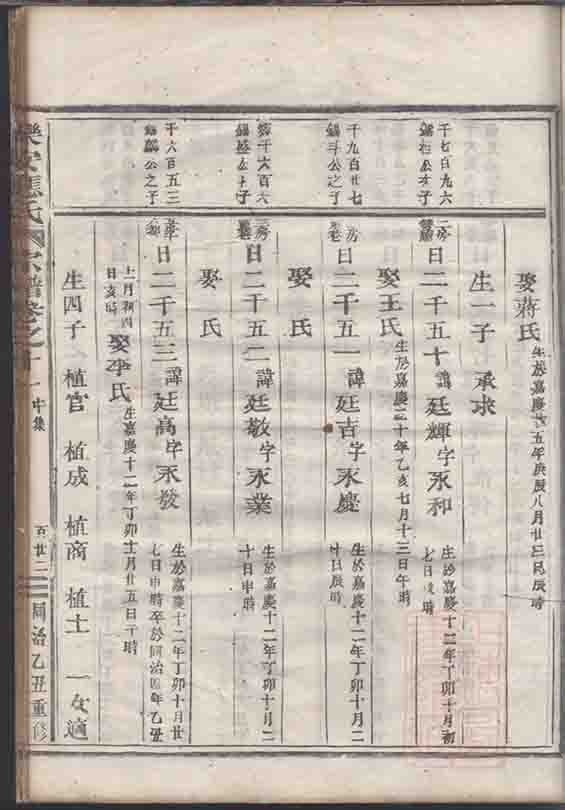 娶蔣氏
生於嘉慶廿五年庚辰八月廿三日辰時
生一子 承求
千七百九六
錫社公之子
二房
曰二千五十諱廷輝字永和
生於嘉慶十二年丁卯十月初
七日戌時
娶王氏
生於嘉慶二十年乙亥七月十三日午時
千九百廿七
錫斗公之子
房
曰二千五一諱廷吉字永慶
生於嘉慶十二年丁卯十月二
十日辰時
娶 氏
千六百六
公之子
房
曰二千五二諱廷敬字永業
生於嘉慶十二年丁卯十月二
十日申時
娶 氏
千六百五三
錫麟公之子
曰二千五三諱廷高字永發
生於嘉慶十二年丁卯十月廿
七日申時卒於同治四年乙丑
十二月初四
日亥時
娶李氏
生嘉慶十二年丁卯十月廿五日子時
生四子 植官 植成 植商 植士 一女適
樂安 氏宗譜卷之
中集
百廿二
同治乙丑重修